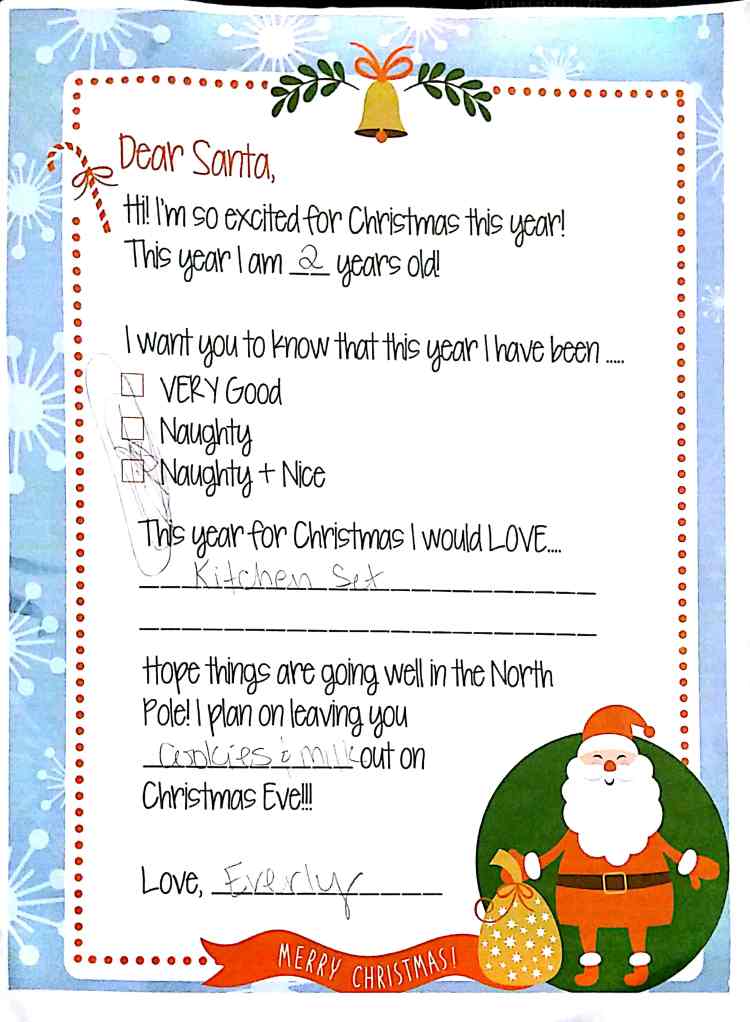 Dear Santa,
Hi! I'm so excited for Christmas this year!
This year I am 2 years old!
I want you to know that this year I have been .....
VERY Good
Naughty
Naughty + Nice
This year for Christmas I would LOVE....
Kitchen Set
Hope things are going well in the North
Pole! I plan on leaving you
cookies & milk out on
Christmas Eve!!!
Love, Everly
MERRY CHRISTMAS!